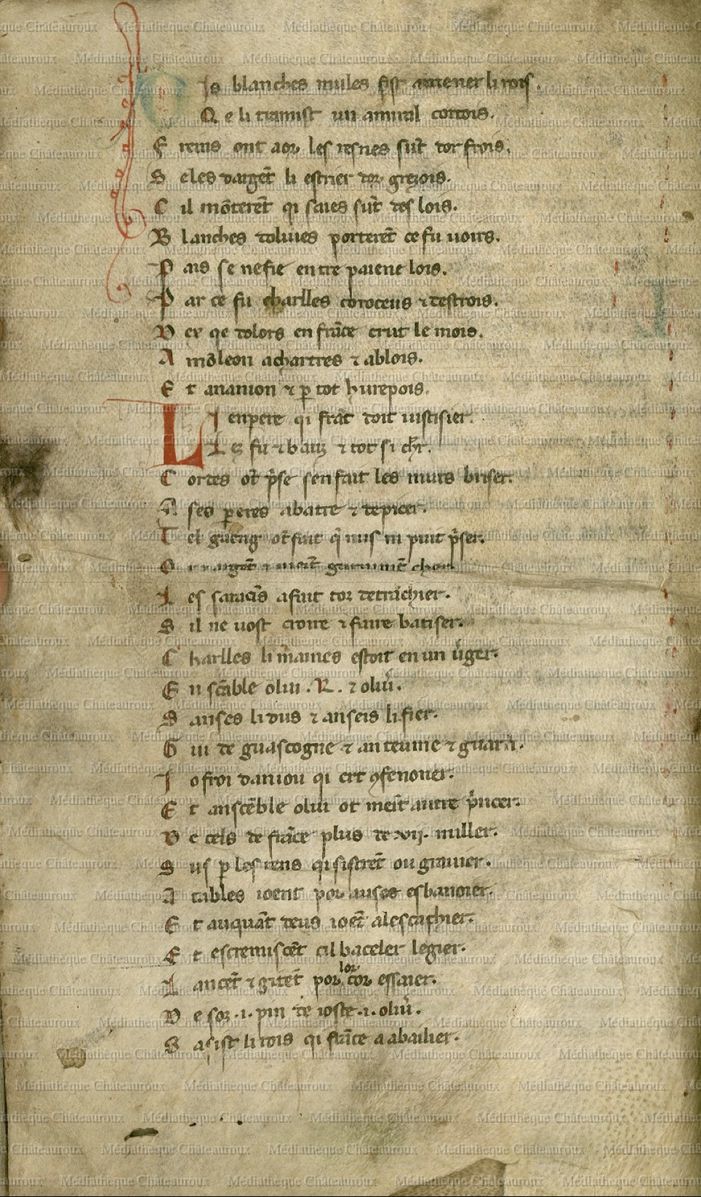 Dis blanches mules fist amener li rois.
Q e li tramist un amiral cortois.
F reins ont a or les resnes sūt dorfrois.
S eles dargēt li estrier dor grezois.
C il mōterēt qi saies sūt des lois.
B lanches dolives porterēt ce fu voirs.
P ais senefie en tre paiene lois.
P ar ce fu charlles coroceus ⁊ destrois.
D ex qe dolors en frāce crut le mois.
A mōleon a chartres ⁊ a blois.
E t a nanion ⁊ p tot hurepois.
LI enperere qi frāc doit iustisier.
L ez fu ⁊ bauz ⁊ tot si chr.
C ordes ot pse sen fait les murs briser.
A ses perieres abatre ⁊ depicer.
T el guaing ot fait q nus ni puit pser.
O r ⁊ argēt ⁊
L es saracis a fait toz detrāchier.
S il ne vost croire ⁊ faire batiser.
C harlles li maines estoit en un vger.
E n sēble o lui . R . ⁊ oliv.
S anses li dus ⁊ anseis li fier.
G ui de guascogne ⁊ an teume ⁊ guarn.
I ofroi daniou qi ert gfenoner.
E t ansēble o lui ot meīt autre pncer.
D e cels de frāce plus de .xvii. miller.
S us p les rens qi sistrēt ou gravier.
A tables ioent por aus esbanoier.
E t auquāt deus ioēt al eschachier.
E t escremiscēt cil baceler legier.
L ancēt ⁊ gitēt por lor cor essaier.
D e soz .i. pin de ioste .i. oliv.
S asist li rois qi frāce a a bailier.
Médiathèque Châteauroux